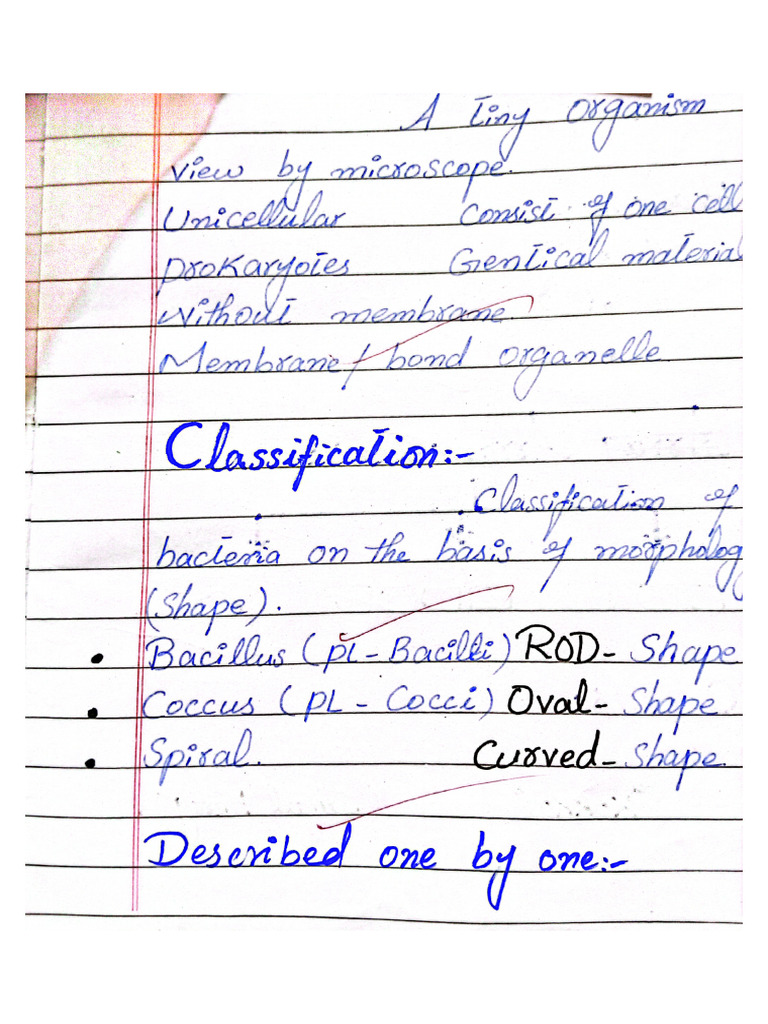 A tiny organism
view by microscope.
Unicellular consist of one cell
prokaryotes Gentical material
without membrane
Membrane/ bond organelle
Classification:-
Classification of
bacteria on the basis of morpholog
(shape).
• Bacillus (pL-Bacilli) ROD- Shape
• Coccus (PL - Cocci) Oval- Shape
• Spiral. Curved- Shape.
Described one by one:-